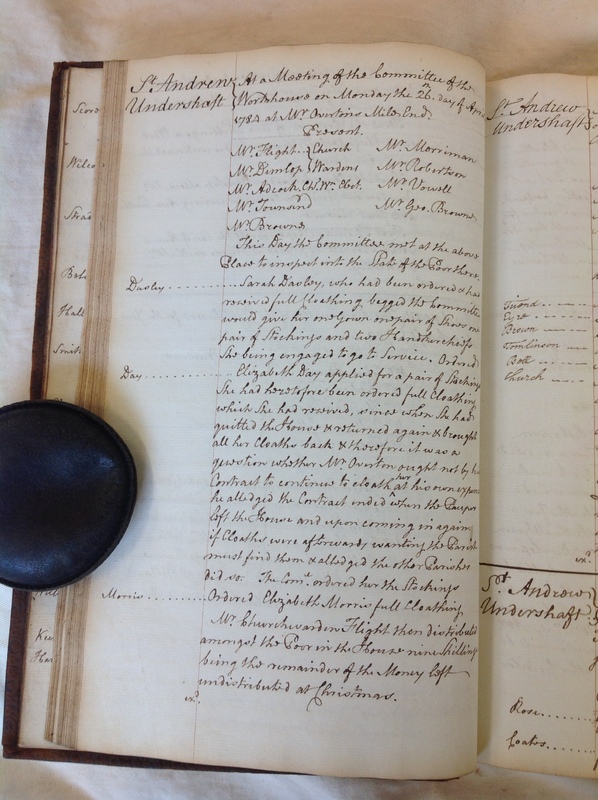 St. Andrew
Undershaft
At a Meeting of the Committee of the
Workhouse on Monday the 26th. day of
1784 at Mr. Overtons Mile End.
Present.
Mr. Flight Church Mr. Merriman
Mr. Dunlop Wardens Mr. Robertson
Mr. Adcock. Mr. Vowell
Mr. Townsend Mr. Geo. Browne
Mr. Browne
This Day the Committee met at the above
Place to inspect into the State of the Poor there.
Dasley Sarah Dasley, who had been ordered & had
received full Cloathing begged the Committee
would give her one Gown one pair of Shoes one
pair of Stockings and two Handkercheifs
She being engaged to go to Service. Ordered
Day Elizabeth Day applied for a pair of Stockings
She had heretofore been ordered full Cloathing
which She had received, since when She had
quitted the House & returned again & brought
all her Cloaths back & therefore it was a
question whether Mr. Overton ought not by his
Contract to continue to cloath her at his own expence
he alledged the Contract ended when the Pauper
left the House and upon coming in again
if Cloaths were afterwards wanting the Parish
must find them & alledged the other Parishes
did so. The Com. ordered her the Stockings
Morris Ordered Elizabeth Morris full Cloathing
Mr. Churchwarden Flight then distributed
amongst the Poor in the House nine Shillings
being the remainder of the Money left
undistributed at Christmas.
exd.
Hall
Smith
St. Andrew
Undershaft
Eyre
Brown
Tomlinson
Bott
Church
exd.
St. Andrew
Undershaft
Rose
Coates